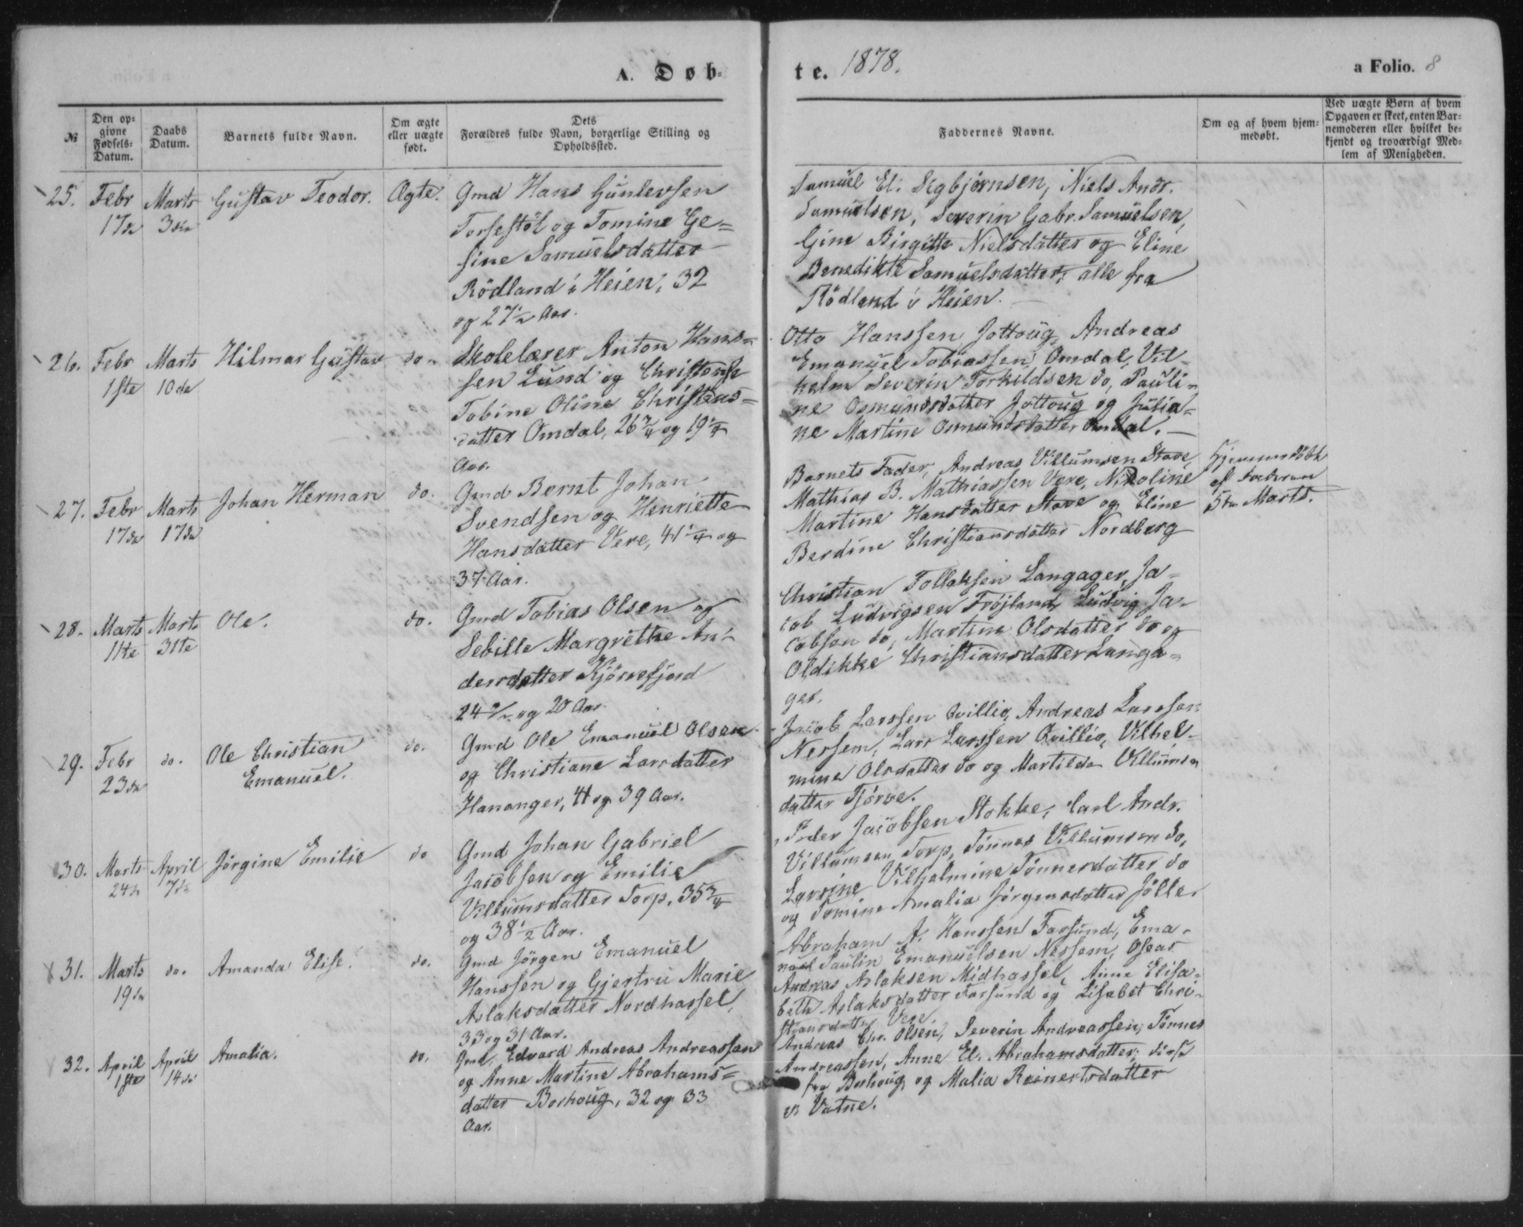 A. Døb-
te. 1878.
a Folio. 8
№
Den op-
givne
Fødsels-
Datum.
Daabs
Datum.
Barnets fulde Navn.
Om ægte
eller uægte
født.
Dets
Forældres fulde Navn, borgerlige Stilling og
Opholdssted.
Faddernes Navne.
Om og af hvem hjem-
medøbt.
Ved uægte Børn af hvem
Opgaven er skeet, enten Bar-
nemoderen eller hvilket be-
kjendt og troværdigt Med-
lem af Menigheden.
25. Febr 17de Marts 3die Gustav Teodor. Ægte.
Gmd Hans Gunlevsen
og Tomine Ge-
sine Samuelsdatter
Rödland i Heien, 32
og 27½ Aar.
Samuel El. Sigbjørnsen, Niels Andr.
Samuelsen, Severin Gabr. Samuelsen,
Gine Birgitte Nielsdatter og Eline
Benedikte Samuelsdatter, alle fra
Rödland i Heien.
26. Febr 1ste Marts 10de Hilmar Gustav do
Skolelærer Anton Hans-
sen Lund og Christense
Tobine Oline Christens-
datter Omdal, 26¾ og 19¼
Aar.
Otto Hanssen Jottoug, Andreas
Emanuel Tobiassen Omdal, Vil-
helm Severin Torkildsen do, Pauli-
ne Osmundsdatter Jottoug og Julia-
ne Martine Osmundsdatter Omdal.
27. Febr 17de Marts 17de Johan Herman do.
Gmd Bernt Johan
Svendsen og Henriette
Hansdatter Vere, 41¼ og
37 Aar.
Barnets Fader, Andreas Villumsen Stave,
Mathias B. Mathiassen Vere, Nikoline
Martine Hansdatter Stave og Eline
Berdine Christiansdatter Nordberg
Hjemmedöbt
af
5te Marts.
28. Marts 11te Marts 31te Ole. do.
Gmd Tobias Olsen og
Sebille Margrethe An-
dersdatter Kjörrefjord
24 og 20 Aar.
Christian Tollaksen Langager, Ja-
cob Ludvigsen Fröjland, Ludvig Ja-
cobsen do, Martine Olsdatter do og
Oldikke Christiansdatter Langa-
ger.
29. Febr 23de do. Ole Christian
Emanuel. do.
Gmd Ole Emanuel Olsen
og Christiane Larsdatter
Hananger, 41 og 39 Aar.
Jacob Larssen Qvillio, Andreas Larssen
Nessem, Lars Larssen Qvillio, Vilhel-
mine Olsdatter do og Martilde Villums-
datter Tjörve.
30. Marts 24de April 7de Jörgine Emilie do
Gmd Johan Gabriel
Jacobsen og Emilie
Villumsdatter Torp, 35¾
og 38½ Aar.
Peder Jacobsen Stokke, Carl Andr.
Villumsen Torp, Tönnes Villumsen do,
Lovrine Vilhelmine Tönnesdatter do
og Tomine Amalia Jörgensdatter Jölle
31. Marts 19de do. Amanda Elise. do.
Gmd Jörgen Emanuel
Hanssen og Gjertru Marie
Aslaksdatter Nordhassel,
33 og 31 Aar.
Abraham A. Hanssen Farsund, Ema-
nuel Paulin Emanuelsen Nessem, Oseas
Andreas Aslaksen Midhassel, Anne Elisa-
beth Aslaksdatter Farsund og Lisabet Chri-
stiansdatter Vere
32. April 1ste April 14de Amalia. do.
Gmd Edvard Andreas Andreassen
og Anne Martine Abrahams-
datter Borhoug, 32 og 33
Aar.
Andreas Chr. Olsen, Severin Andreassen, Tönnes
Andreassen, Anne El. Abrahamsdatter, disse
fra Borhoug, og Malia Reinertsdatter
Vatne.